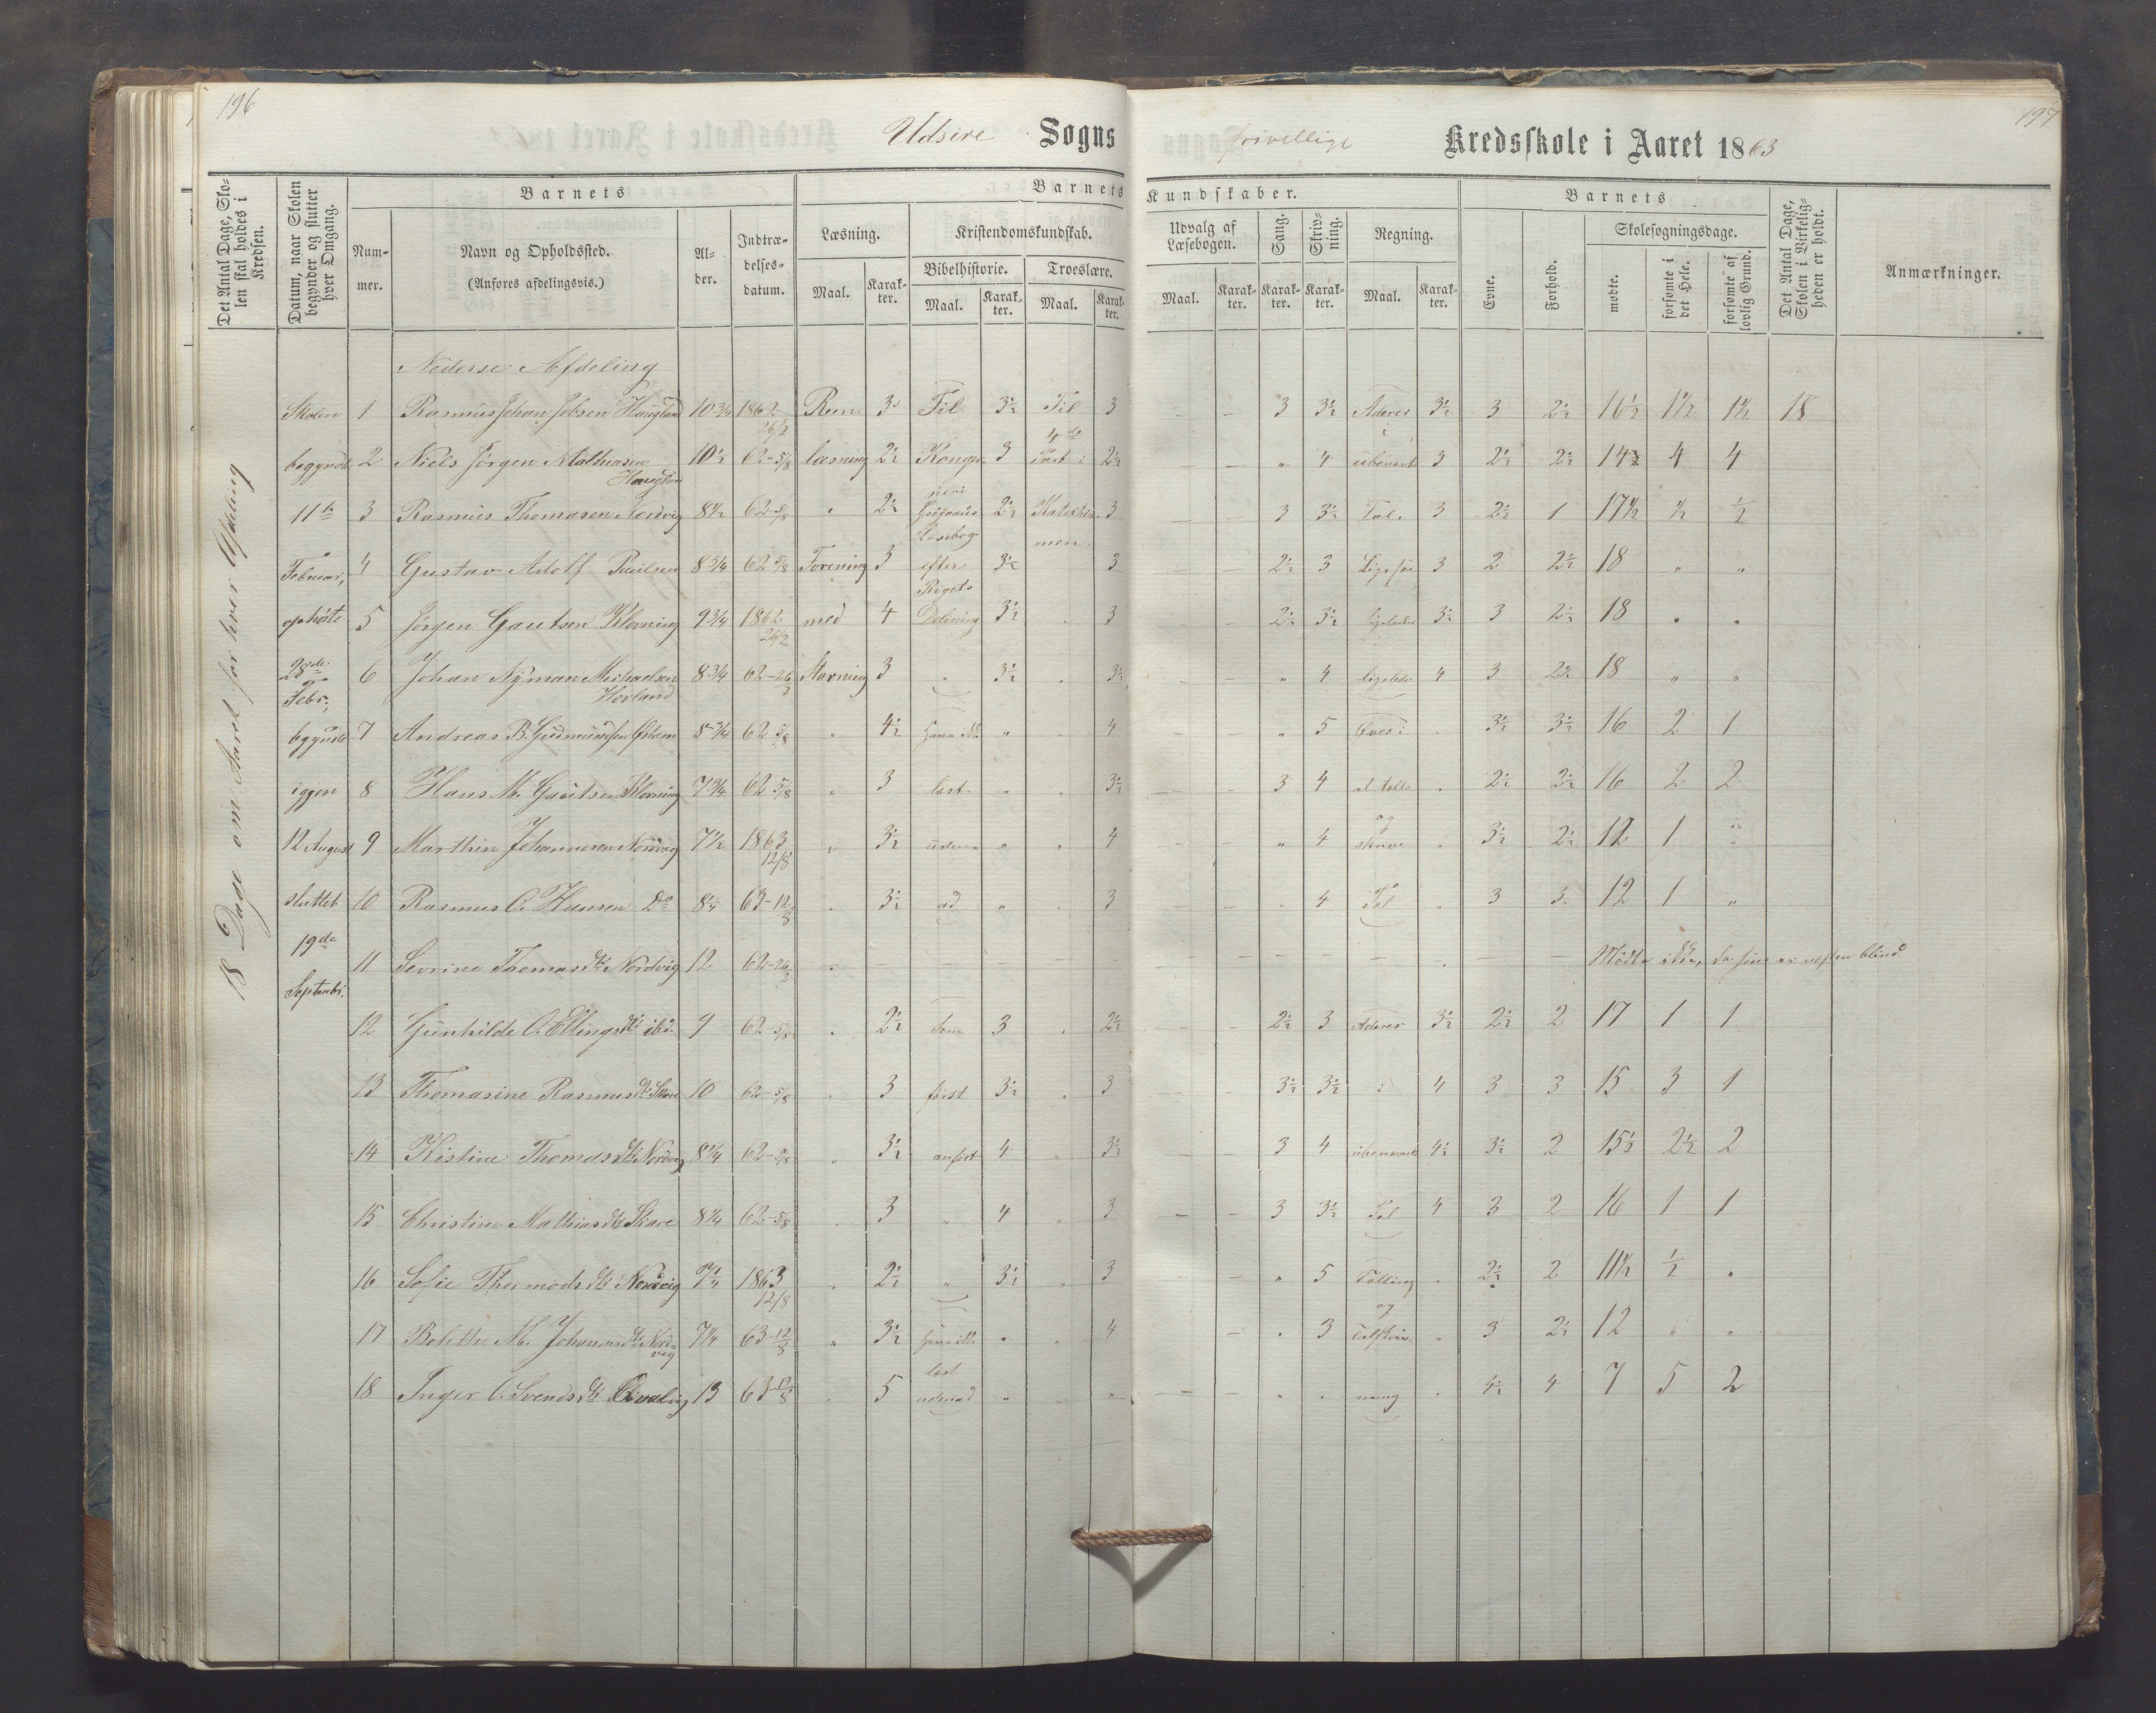 196
197
Udsire Sogns frivellige Kredsskole i Aaret 1863
Det Antal Dage, Skolen skal holdes i Kredsen.
Datum, naar Skolen begynder og slutter hver Omgang.
Barnets
Nummer.
Navn og Opholdssted.
(Anføres afdelingsvis.)
Alder.
Indtrædelsesdatum.
Barnets Kundskaber.
Læsning.
Maal. Karakter.
Kristendomskundskab.
Bibelhistorie.
Maal. Karakter.
Troeslære.
Maal. Karakter.
Udvalg af Læsebogen.
Maal. Karakter.
Sang.
Karakter.
Skrivning.
Karakter.
Regning.
Maal. Karakter.
Barnets
Evne.
Forhold.
Skolesøgningsdage.
mødte.
forsømte i det Hele.
forsømte af lovlig Grund.
Det Antal Dage, Skolen i Virkeligheden er holdt.
Anmærkninger.
18 Dage om Aaret for hver Afdeling
Nederse Afdeling
Skolen 1 Rasmus Johan Jobsen Haugland 10 3/4 1862 26/2 Ren 3 Til 3½ Til 3 - - 3 3½ Aderer 3½ 3 2½ 16½ 1½ 1½ 18
begyndte 2 Niels Jørgen Mathiasen Haugland 10½ 62-5/8 læsning 2½ Konge 3 4de Part i 2½ - - " 4 ubenævnte 3 2½ 2½ 14 4 4
11te 3 Rasmus Thomasen Nordvig 8½ 62-5/8 " 2½ Læsebog 2½ Katekis 3 - - 3 3½ Tal. 3 2½ 1 17½ ½ ½
Februar, 4 Gustav Adolf Paulsen 8 3/4 62 5/8 Forening 3 efter Rigets 3½ men 3 - - 2½ 3 Ligesaa 3 2 2½ 18 " "
ophørte 5 Jørgen Gautsen Klovning 9 3/4 1862 26/2 med 4 Deling 3½ 3 - - 2½ 3½ ligeledes 3½ 3 2½ 18 " "
28de Febr., 6 Johan Nyman Michaelsen Hovland 8 3/4 62-26/2 Stavning 3 " 3½ " 3½ " 4 ligeledes 4 3 2½ 18 " "
begyndte 7 Andreas B. Gudmundsen 8 3/4 62 5/8 " 4½ " 4 - - " 5 Øves i 3½ 3½ 16 2 1
igjen 8 Hans M. Gautsen Klovning 7 3/4 62-5/8 " 3 læst " 3½ - - 3 4 at tælle 2½ 3½ 16 2 2
12 August 9 Marthin Johannesen Nordvig 7½ 1863 12/8 " 3½ uden " 4 - - " 4 og skrive 3½ 2½ 12 1 "
sluttet 10 Rasmus O. Hansen Do 8¼ 63-12/8 " 3½ ad " 3 - - 4 Tal 3 3 12 1 "
19de
Septembr.
11 Sevrine Thomasdtr Nordvig 12 62-26/2 - Mødte ikke, da hun er næsten blind
12 Gunhilde O. Ellingsdtr ibd. 9 62-5/8 2½ Som 3 2½ - - 2½ 3 Aderer 3½ 2½ 2 17 1 1
13 Thomasine Rasmusdtr Skare 10 62-5/8 3 først 3½ 3 - - 3½ 3½ i 4 3 3 15 3 1
14 Kistine Thomasdtr Nordvig 8¼ 62-5/8 3½ anført 4 3½ 3 4 ubenævnte 4½ 3½ 2 15½ 2½ 2
15 Christine Mathiasdtr Skare 8¼ 62-5/8 3 " 4 3 - - 3 3½ Tal 4 3 2 16 1 1
16 Sofie Thormodsdtr Nordvig 7¼ 1863 12/8 2½ " 3½ 3 - " 5 Tælling 2½ 2 11½ ½ "
17 Bolette M. Johannesdtr Nordvig 7¼ 63-12/8 " 3½ " 4 - " 3 og Talskriv- " 3 2½ 12 " "
18 Inger O. Svendsdtr 13 63-12/8 5 læst udenad " " - - " " ning 4½ 4 7 5 2